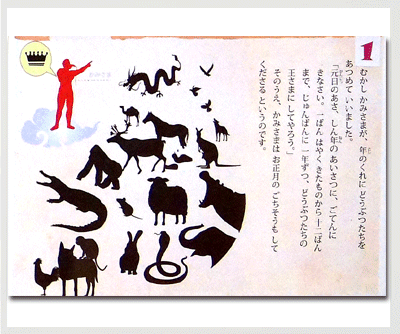 1
むかし かみさまが、年のくにに どうぶつたちを
あつめて いいました。
「元日のあさ、しん年の あいさつに、ごてんに
きなさい。一ばん はやく きたものから 十二ばん
まで、じゅんばんに 一年ずつ、どうぶつたちの
王さまに してやろう。」
そのうえ、かみさまは お正月の ごちそうも して
くださる というのです。